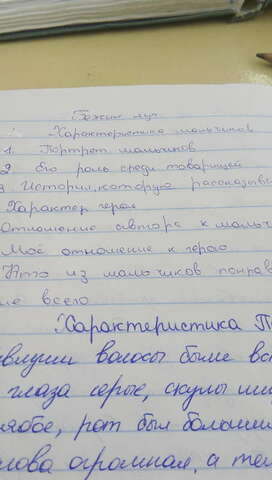 Бежин луг
Характеристика мальчиков
1. Портрет мальчиков
2 Его роль среди товарищей
3 История, которую рассказыв
Характер героя
Отношение автора к мальч
Моё отношение к герою
Кто из мальчиков понрав
всего
Характеристика П
волосы были вс
глаза серые, скулы ши
рябое, рот был большой
огромная, а тел